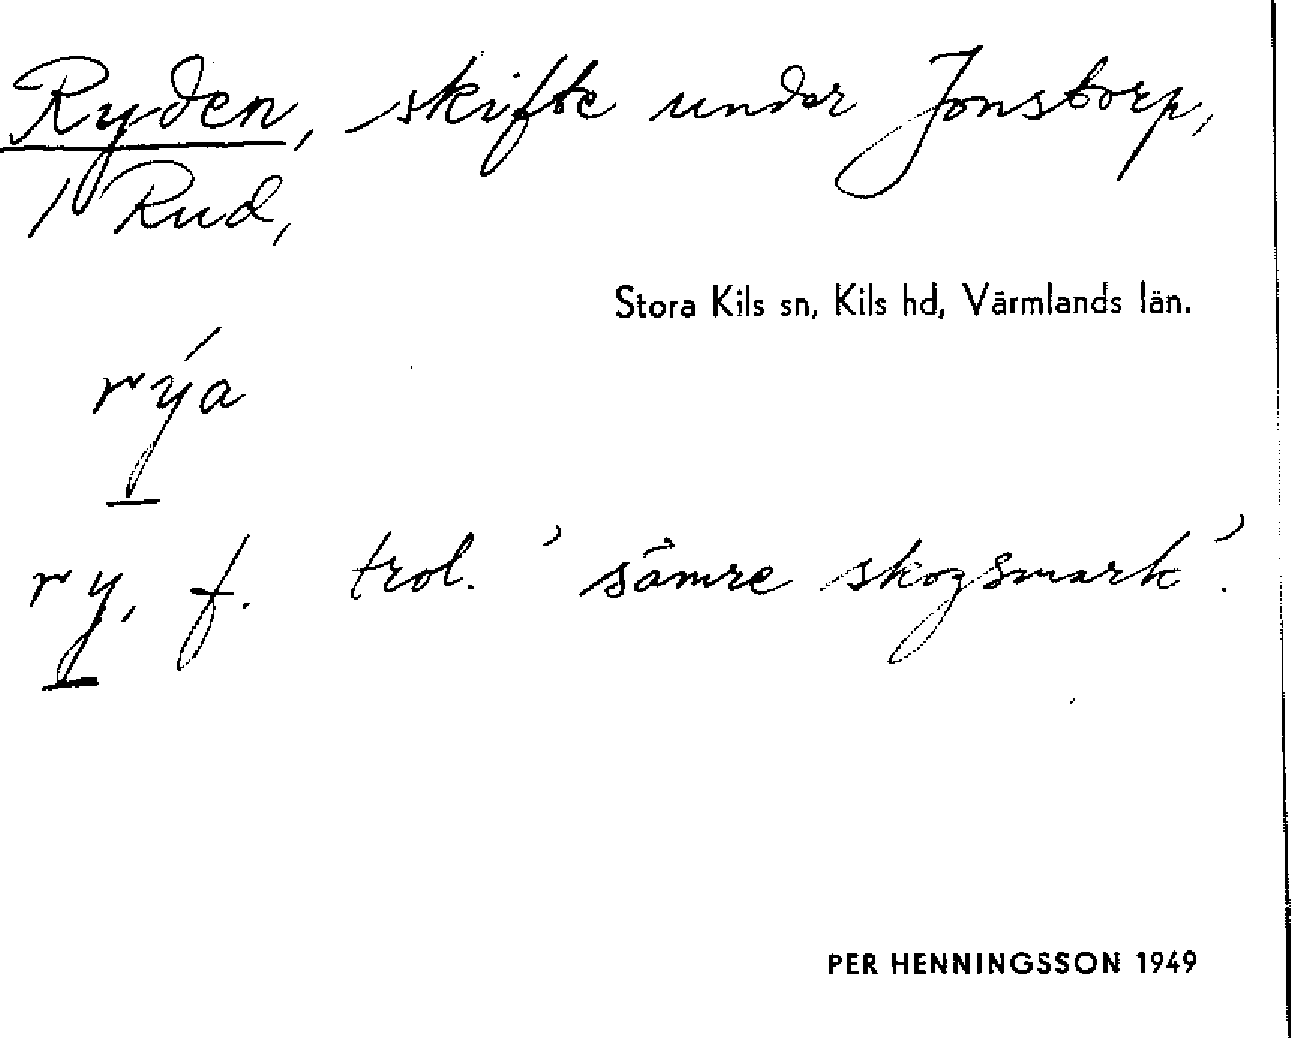 Ryden, skifte under Jonstorp,
1 Rud,
Stora Kils sn, Kils hd, Värmlands län.
rýa
ry, f. trol. ’sämre skogsmark’.
PER HENNINGSSON 1949